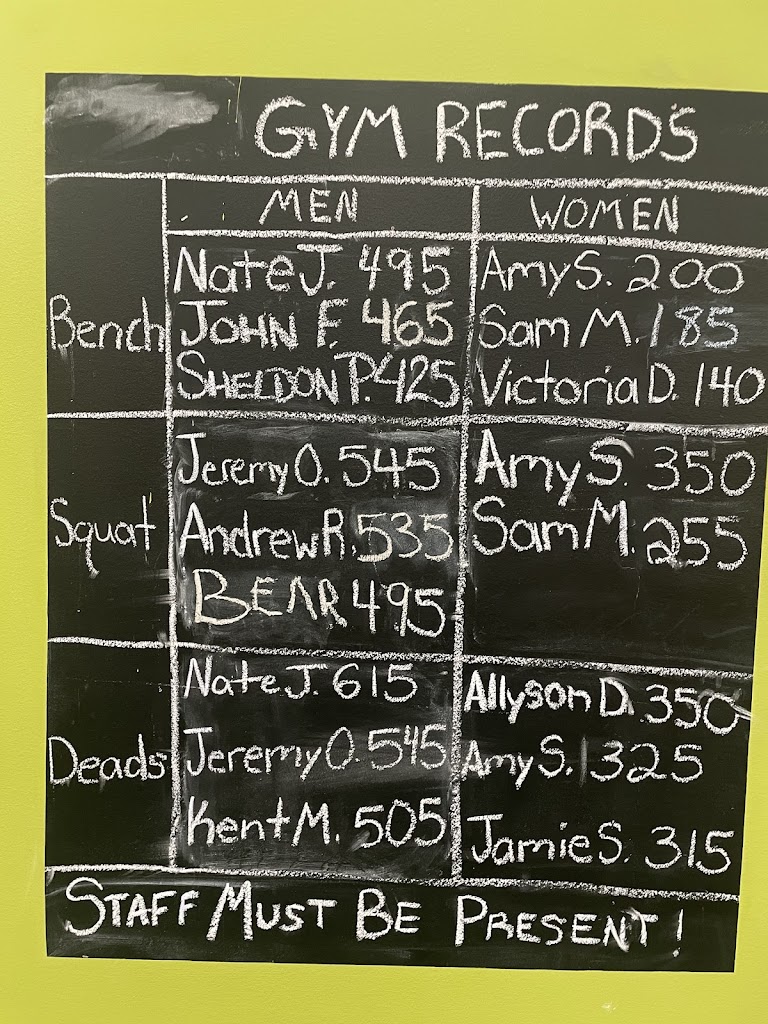 GYM RECORDS
MEN WOMEN
Bench
Nate J. 495 Amy S. 200
JOHN F. 465 Sam M. 185
SHELDON P. 425 Victoria D. 140
Squat
Jeremy O. 545 Amy S. 350
Andrew R. 535 Sam M. 255
BEAR 495
Deads
Nate J. 615 Allyson D. 350
Jeremy O. 545 Amy S. 325
Kent M. 505 Jamie S. 315
STAFF MUST BE PRESENT!